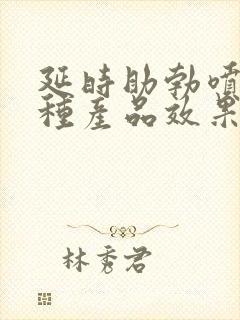 延時助勃噴
種產品效果
林秀君